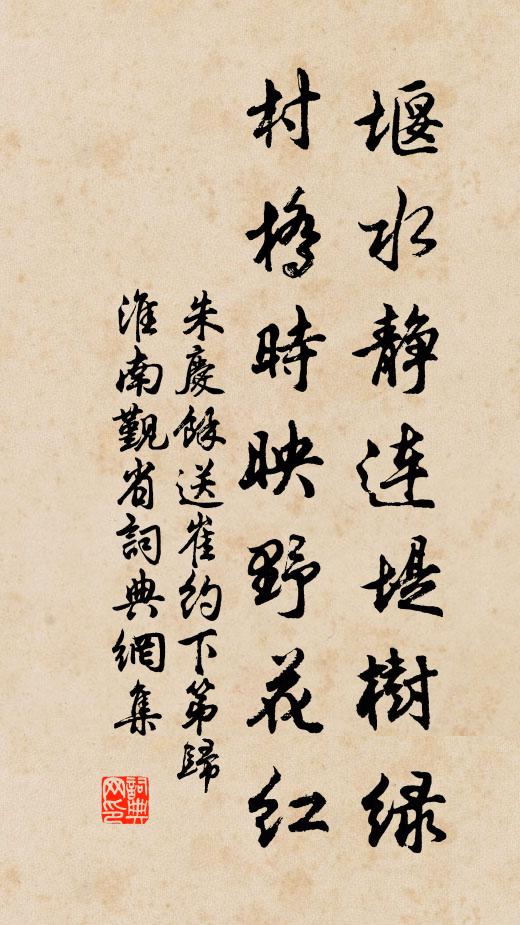 堰水静连堤樹绿
村橋時映野花红
朱慶餘送崔约下第歸
淮南觐省詞典網集
詞典网印